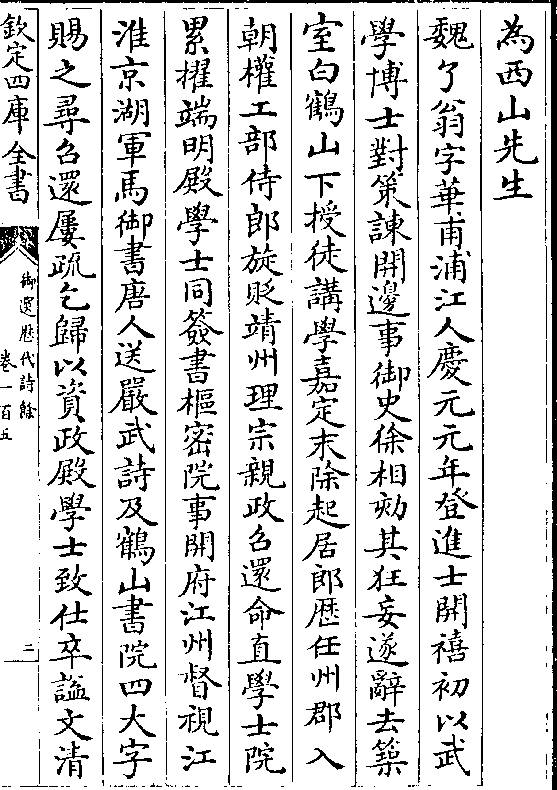 為西山先生
魏了翁字華甫浦江人慶元元年登進士開禧初以武
學博士對策諫開邊事御史徐相劾其狂妄遂辭去築
室白鶴山下授徒講學嘉定末除起居郎歴任州郡入
朝權工部侍郎旋貶靖州理宗親政召還命直學士院
累擢端明殿學士同簽書樞密院事開府江州督視江
淮京湖軍馬御書唐人送嚴武詩及鶴山書院四大字
賜之尋召還屢疏乞歸以資政殿學士致仕卒諡文清
欽定四庫全書
御選歴代詩餘
卷一百五
三